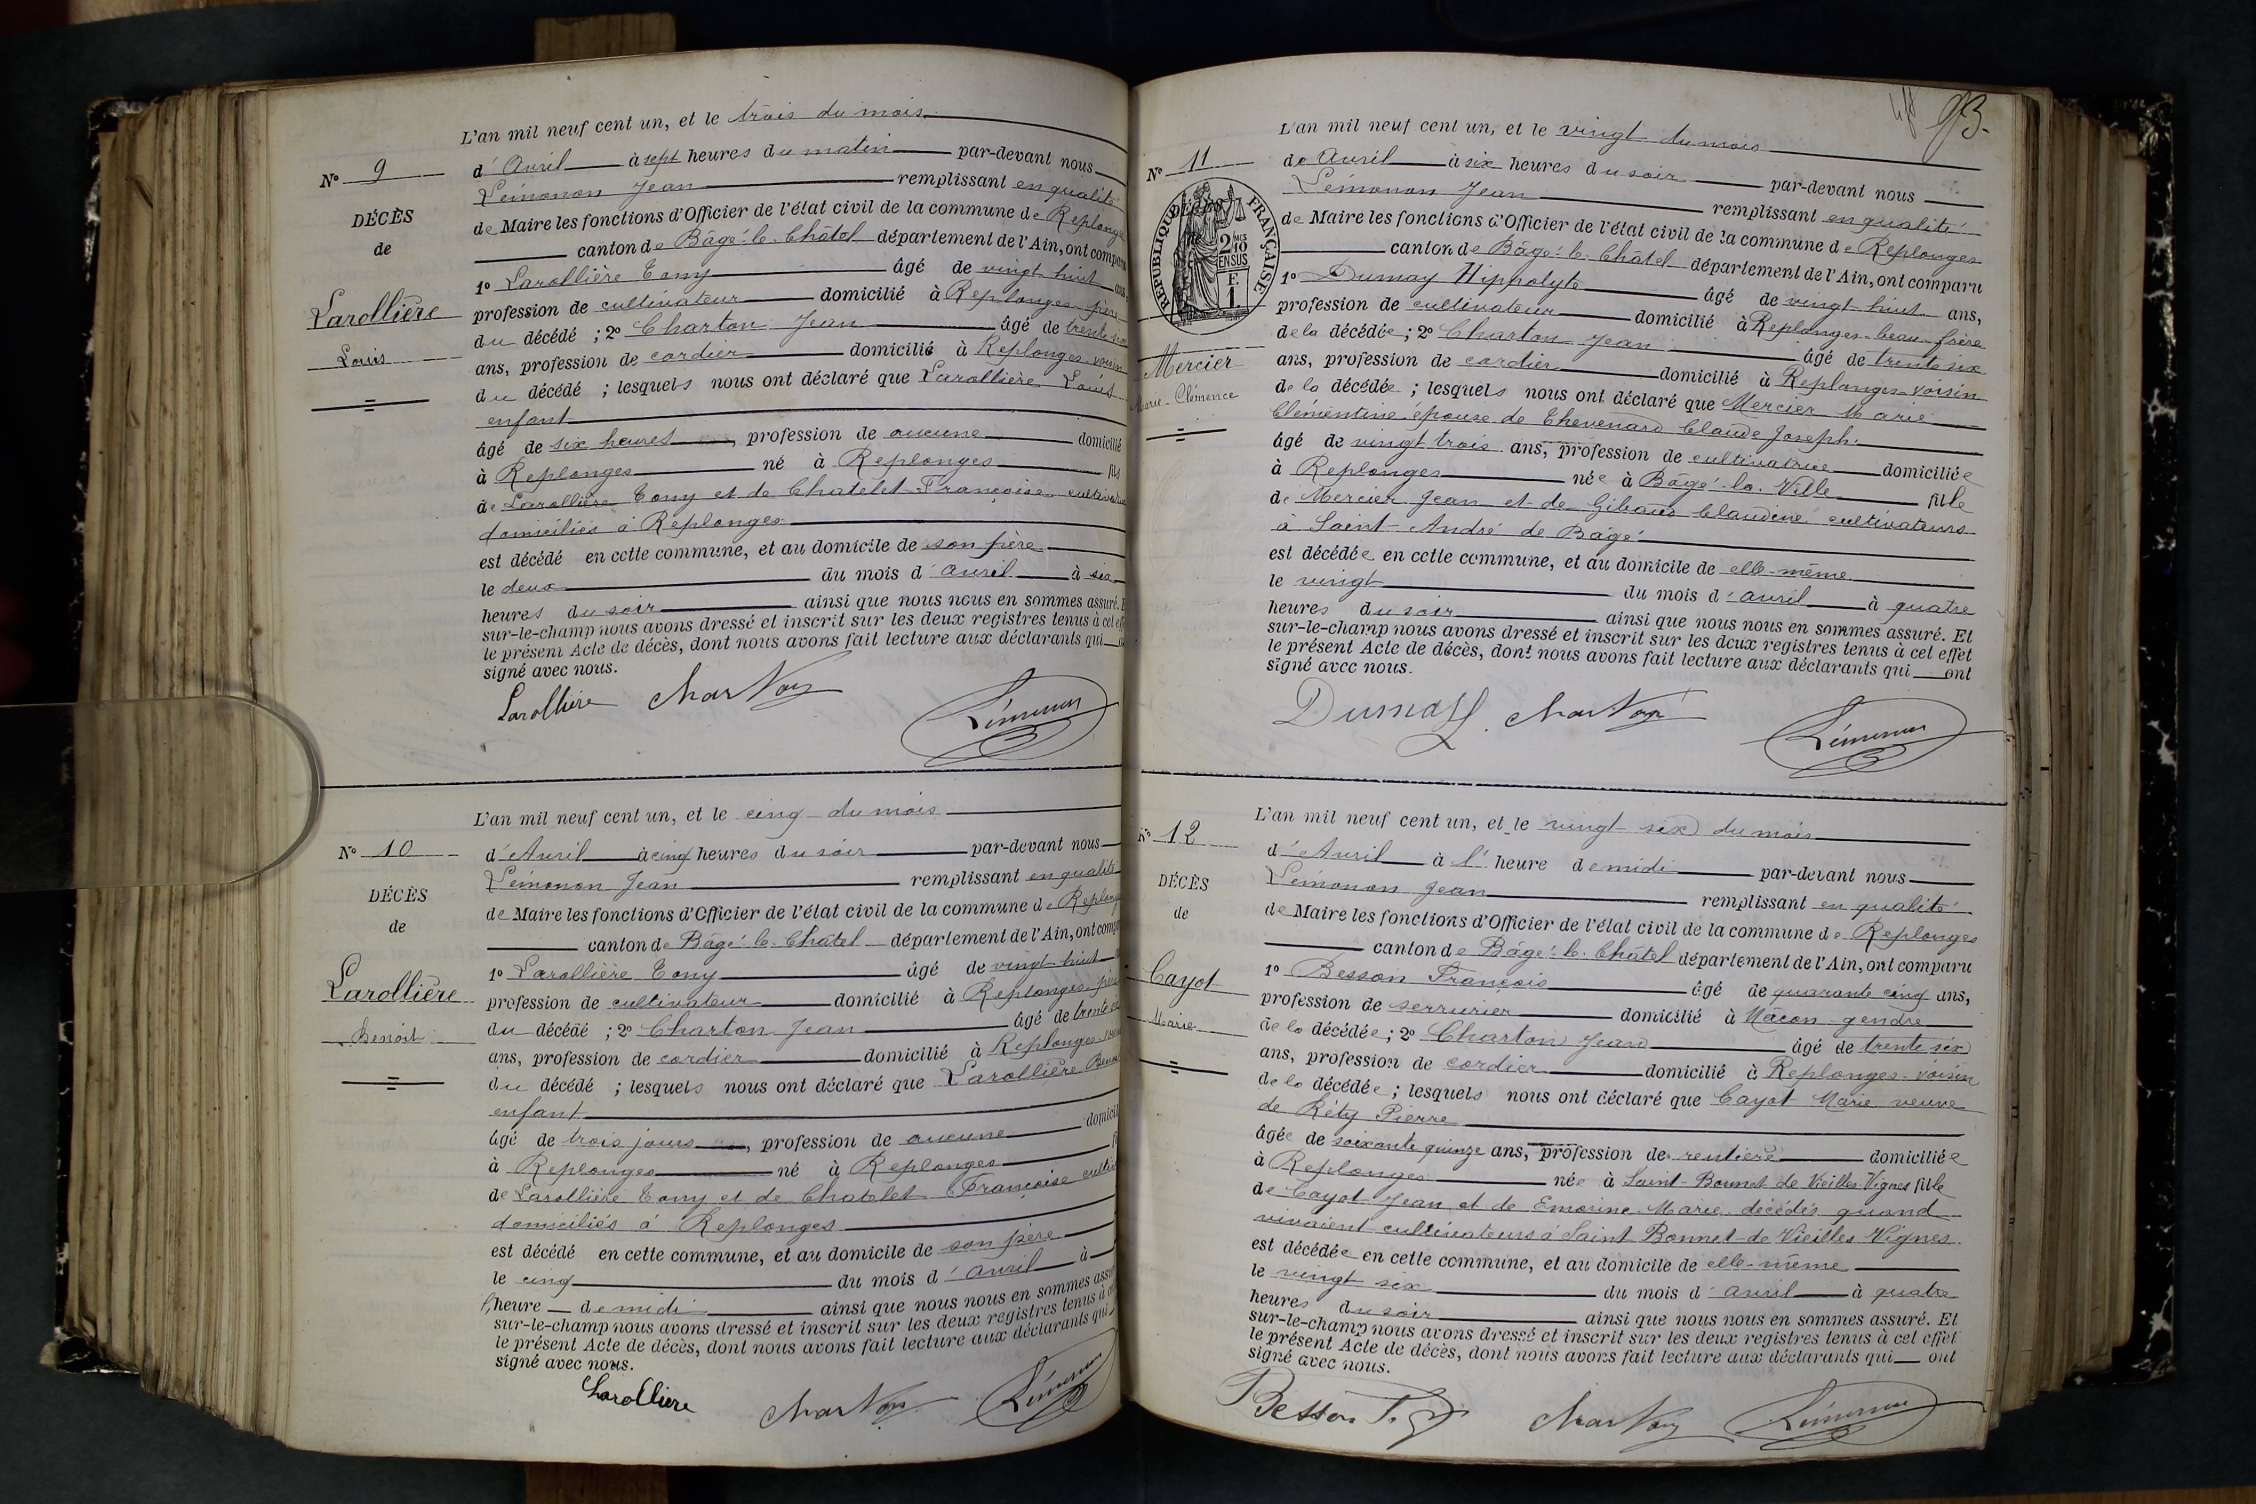 L'an mil neuf cent un, et le trois du mois
N° 9
d'Avril à sept heures du matin par-devant nous
Lémonon Jean remplissant en qualité
DÉCÈS
de Maire les fonctions d'Officier de l'état civil de la commune de Replonges
de
canton de Bâgé-le-Châtel département de l'Ain, ont comparu
1° Larollière Tony âgé de vingt huit ans,
Larollière
profession de cultivateur domicilié à Replonges père
du décédé ; 2° Charton Jean âgé de trente six
Louis
ans, profession de cordier domicilié à Replonges voisin
du décédé ; lesquels nous ont déclaré que Larollière Louis
enfant
âgé de six heures, profession de aucune domicilié
à Replonges né à Replonges fils
de Larollière Tony et de Chatelet Françoise
domiciliés à Replonges
est décédé en cette commune, et au domicile de son père
le deux du mois d'avril à six
heures du soir ainsi que nous nous en sommes assuré. E
sur-le-champ nous avons dressé et inscrit sur les deux registres tenus à cet eff
le présent Acte de décès, dont nous avons fait lecture aux déclarants qui
signé avec nous.
Larollière Charton Lémonon
L'an mil neuf cent un, et le cinq du mois
N° 10
d'Avril à cinq heures du soir par-devant nous
Lémonon Jean remplissant en qualité
DÉCÈS
de Maire les fonctions d'Officier de l'état civil de la commune de Replong
de
canton de Bâgé-le-Châtel département de l'Ain, ont comp
1° Larollière Tony âgé de vingt huit
Larollière
profession de cultivateur domicilié à Replonges père
du décédé ; 2° Charton Jean âgé de trente
Benoit
ans, profession de cordier domicilié à Replonges
du décédé ; lesquels nous ont déclaré que Larollière Beno
enfant
âgé de trois jours, profession de aucune domicil
à Replonges né à Replonges
de Larollière Tony et de Chatelet Françoise
domiciliés à Replonges
est décédé en cette commune, et au domicile de son père
le cinq du mois d'avril à
l'heure de midi ainsi que nous nous en sommes assu
sur-le-champ nous avons dressé et inscrit sur les deux registres tenus à
le présent Acte de décès, dont nous avons fait lecture aux déclarants qui
signé avec nous.
Larolliere Charton Lémonon
93.
L'an mil neuf cent un, et le vingt du mois
N° 11
de Avril à six heures du soir par-devant nous
Lémonon Jean remplissant en qualité
RÉPUBLIQUE FRANÇAISE
2/10 EN SUS
F. 1
de Maire les fonctions d'Officier de l'état civil de la commune de Replonges
canton de Bâgé-le-Châtel département de l'Ain, ont comparu
1° Dumay Hippolyte âgé de vingt huit ans,
profession de cultivateur domicilié à Replonges beau-frère
de la décédée ; 2° Charton Jean âgé de trente six
Mercier
ans, profession de cordier domicilié à Replonges voisin
Marie-Clémence
de la décédée ; lesquels nous ont déclaré que Mercier Marie
Clémentine épouse de Thevenard Claude Joseph
âgé de vingt trois ans, profession de cultivatrice domiciliée
à Replonges née à Bâgé-la-Ville fille
de Mercier Jean et de Gibaud Claudine cultivateurs
à Saint-André de Bâgé
est décédée en cette commune, et au domicile de elle-même
le vingt du mois d'avril à quatre
heures du soir ainsi que nous nous en sommes assuré. Et
sur-le-champ nous avons dressé et inscrit sur les deux registres tenus à cet effet
le présent Acte de décès, dont nous avons fait lecture aux déclarants qui ont
signé avec nous.
Dumay Charton Lémonon
L'an mil neuf cent un, et le vingt six du mois
N° 12
d'Avril à l'heure de midi par-devant nous
Lémonon Jean remplissant en qualité
DÉCÈS
de Maire les fonctions d'Officier de l'état civil de la commune de Replonges
de
canton de Bâgé-le-Châtel département de l'Ain, ont comparu
1° Besson François âgé de quarante cinq ans,
Cayot
profession de serrurier domicilié à Mâcon gendre
Marie
de la décédée ; 2° Charton Jean âgé de trente six
ans, profession de cordier domicilié à Replonges voisin
de la décédée ; lesquels nous ont déclaré que Cayot Marie veuve
de Réty Pierre
âgée de soixante quinze ans, profession de rentière domiciliée
à Replonges née à Saint-Bonnet de Vieilles Vignes fille
de Cayot Jean et de Emorine Marie décédés quand
vivaient cultivateurs à Saint Bonnet-de Vieilles Vignes
est décédée en cette commune, et au domicile de elle-même
le vingt six du mois d'avril à quatre
heures du soir ainsi que nous nous en sommes assuré. Et
sur-le-champ nous avons dressé et inscrit sur les deux registres tenus à cet effet
le présent Acte de décès, dont nous avons fait lecture aux déclarants qui ont
signé avec nous.
Besson Charton Lémonon